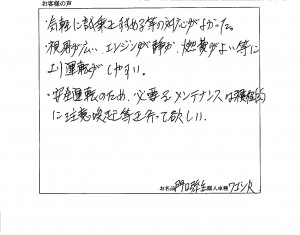 お客様の声
・気軽に試乗をすすめる等の対応がよかった。
・視界が広い、エンジンが静か、燃費がよい等に
より運転がしやすい。
・安全運転のため、必要なメンテナンスは積極的
に注意喚起等を行って欲しい。
お名前 購入車種 ワゴンR